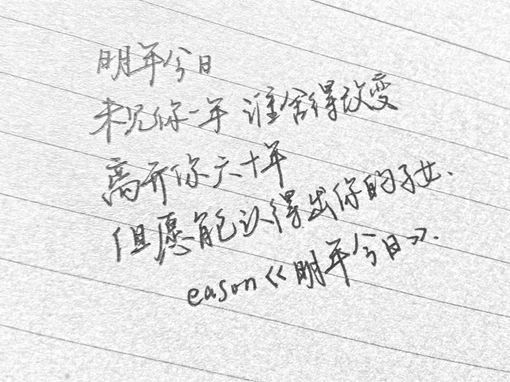 明年今日
未见你一年 谁舍得改变
离开你六十年
但愿能认得出你的子女.
eason《明年今日》.